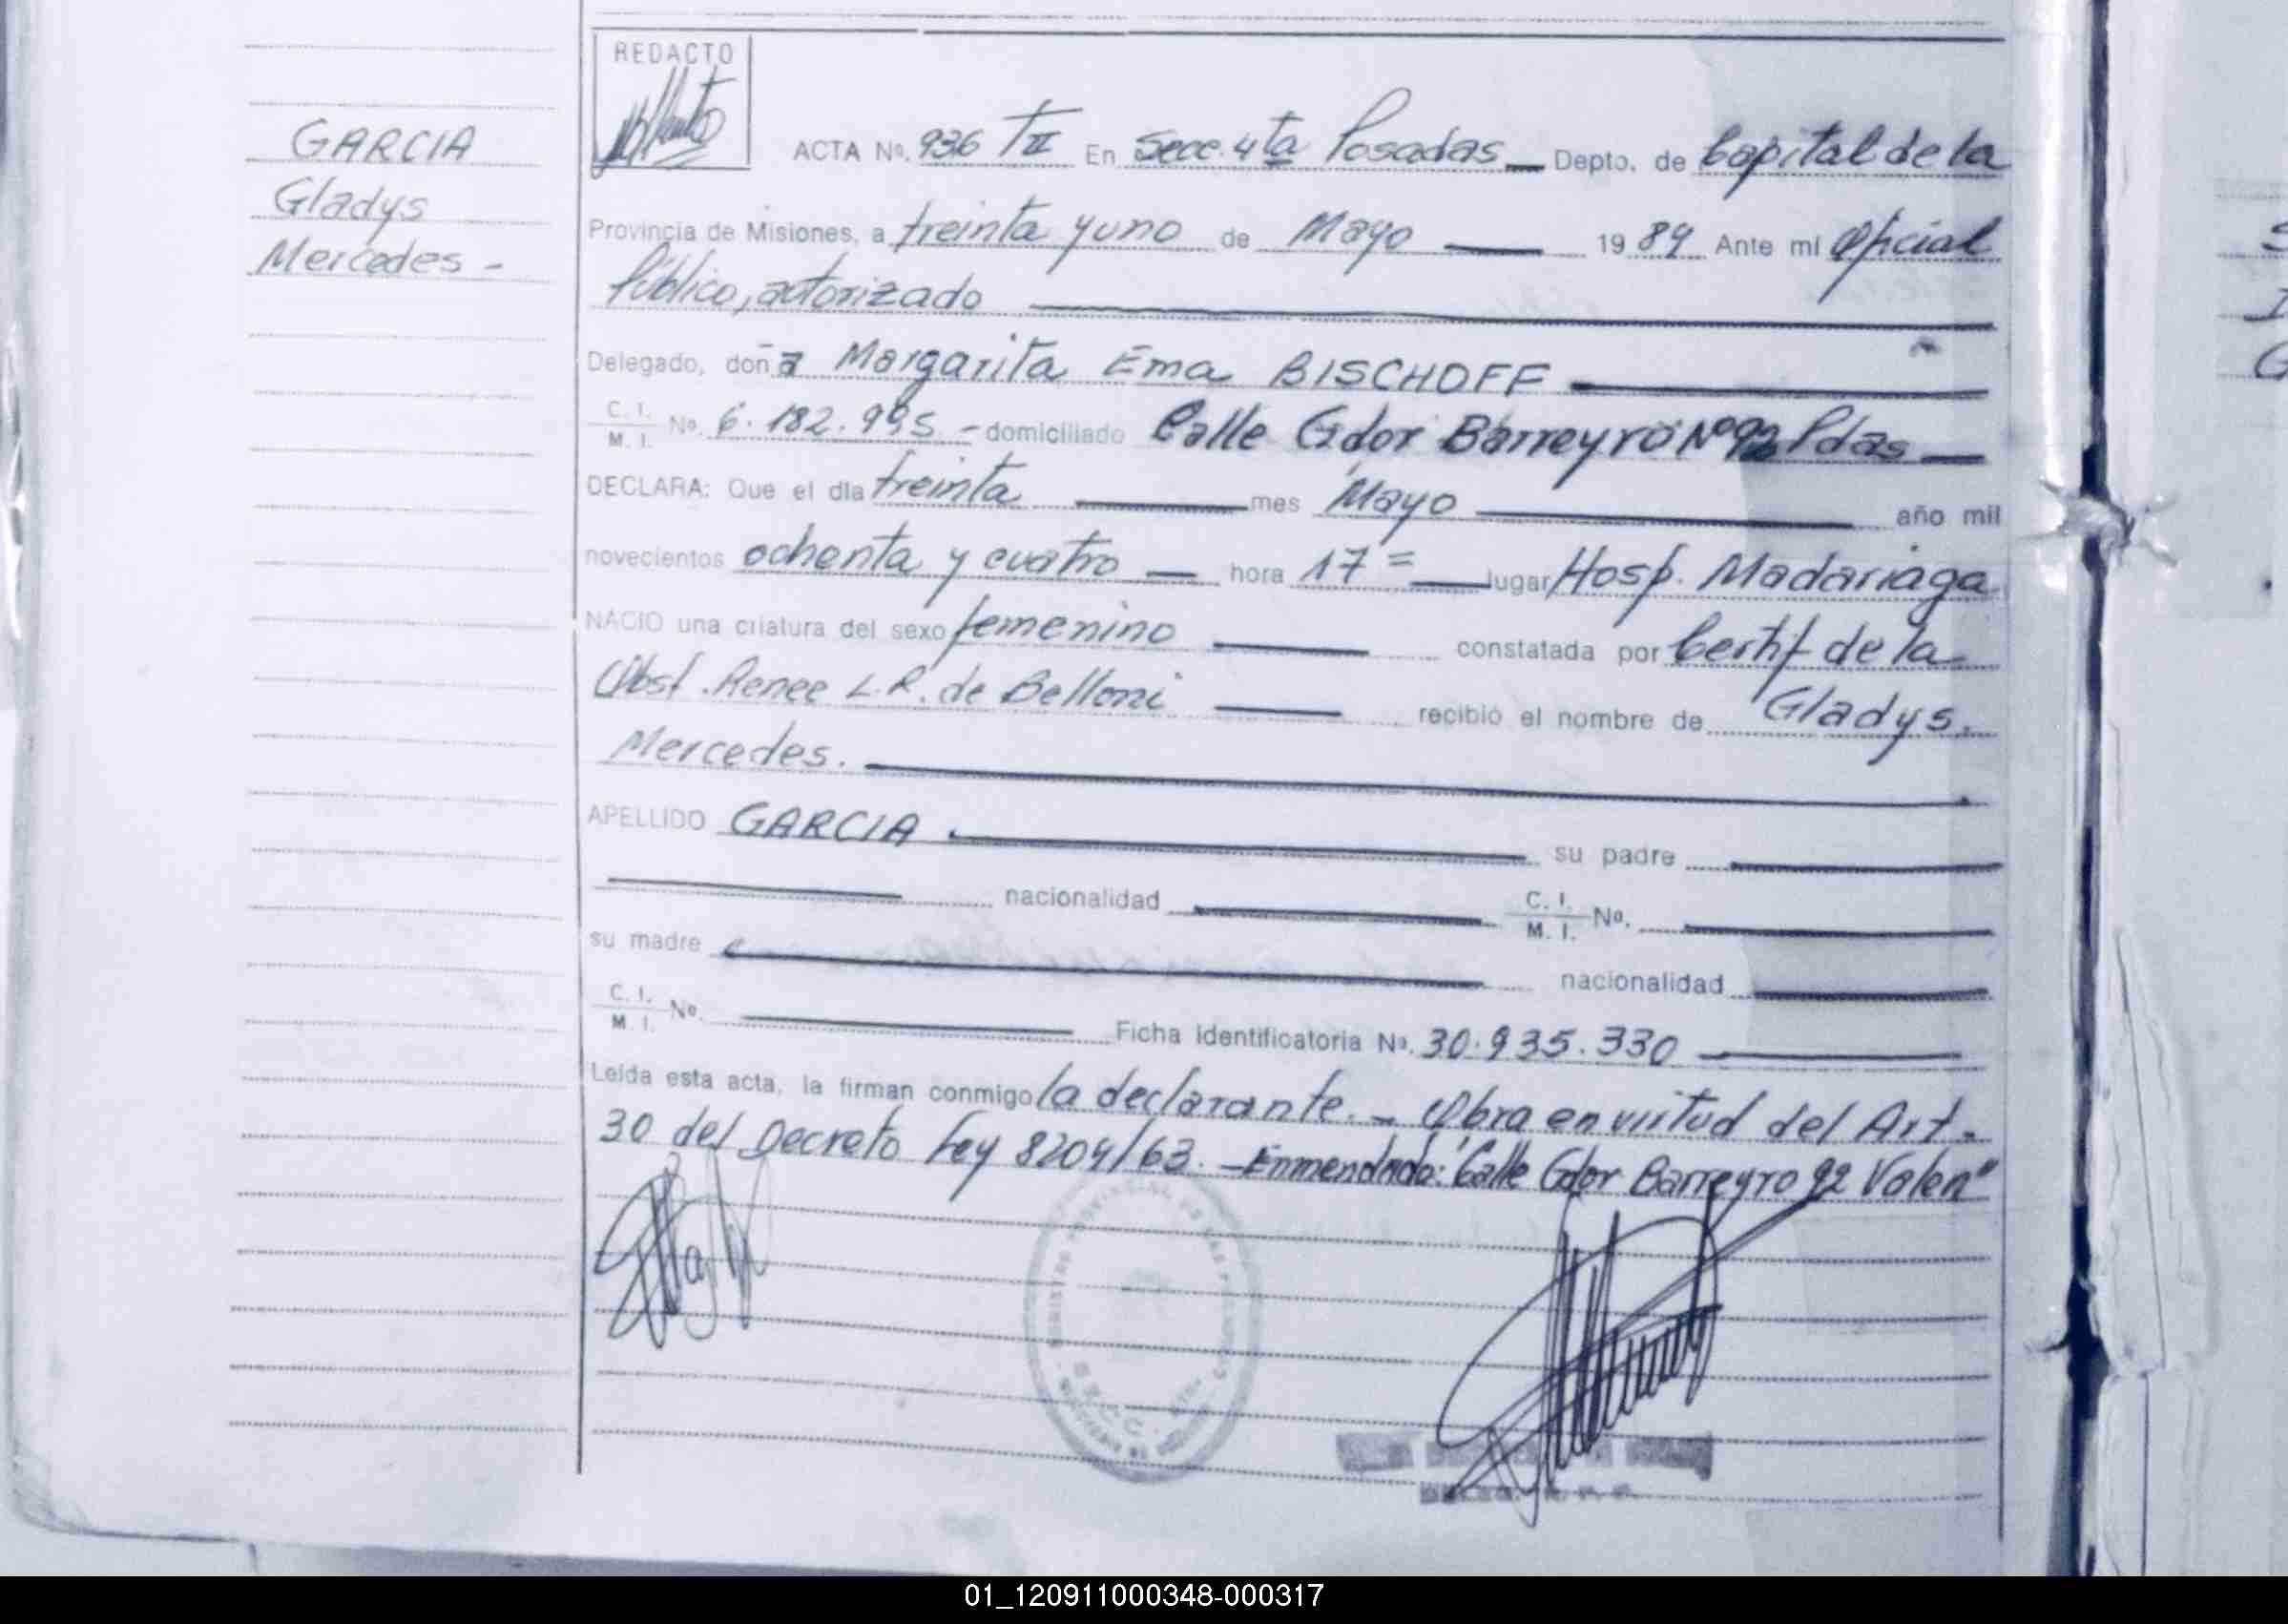 REDACTO
GARCIA
Gladys
Mercedes -
ACTA Nº. 936 TII En Secc. 4ta Posadas Depto. de Capital de la
Provincia de Misiones, a treinta y uno de Mayo 1984 Ante mí Oficial
Público, autorizado
Delegado, doña Margarita Ema BISCHOFF
C. I. M. I. Nº. 6.182.995 - domiciliado Calle Gdor Barreyro Nº 92 Pdas
DECLARA: Que el día treinta mes Mayo año mil
novecientos ochenta y cuatro hora 17= lugar Hosp. Madariaga
NACIO una criatura del sexo femenino constatada por Certif de la
Obst. Renee L. R. de Belloni recibió el nombre de Gladys.
Mercedes.
APELLIDO GARCIA su padre
nacionalidad C. I. M. I. Nº.
su madre nacionalidad
C. I. M. I. Nº. Ficha Identificatoria Nº. 30.935.330
Leída esta acta, la firman conmigo la declarante. - Obra en virtud del Art.
30 del Decreto Ley 8204/63. - Enmendado: "Calle Gdor Barreyro 92 Valen"
01_120911000348-000317